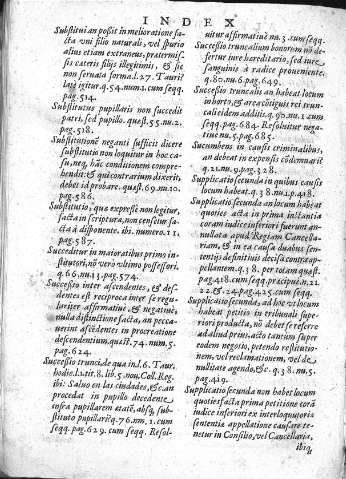 INDEX
Substitui an possit in melioratione fa-
cta vni filio naturali, vel spurio
alius etiam extraneus, prætermis-
sis cæteris filijs illegitimis, & sic
non seruata forma l. 27. Tauri?
late igitur q. 54. num. 1. cum seqq.
pag. 514.
Substitutus pupillaris non succedit
patri, sed pupillo. quæst. 55. nu. 2.
pag. 518.
Substitutionē neganti sufficit dicere
substitutiō non loquitur in hoc ca-
su, neq; hāc conditionem compre-
hendit: & qui contrarium dixerit,
debet id probare. quæst. 69. nu. 10.
pag. 586.
Substitutio, quæ expressè non legitur,
facta in scriptura, non censetur fa-
cta à disponente. ibi. numero. 11.
pag. 587.
Succeditur in maioratibus primo in-
stitutori, nō verò vltimo possessori.
q. 66. nu. 13. pag. 574.
Successio inter ascendentes, & des-
dentes est reciproca inter se regu-
lariter affirmatiuè, & negatiuè:
nulla distinctione facta, an pecca-
uerint ascēdentes in procreatione
descendentium. quæst. 74. num. 5.
pag. 624.
Successio trunci de qua in l. 6. Taur.
hodie. l. 1. tit. 8. lib. 5. nou. Coll. Reg.
ibi: Saluo en las ciudades, & c. an
procedat in pupillo decedente
intra pupillarem ætatē, absq; sub-
stituto pupillari? q. 76. nu. 1. cum
seqq. pag. 629. cum seqq. Resol-
uitur affirmatiuè nu. 3. cum seqq.
Successio truncalium bonorum nō de-
fertur iure hereditario, sed iure
sanguinis à radice proueniente.
q. 80. nu. 6. pag. 649.
Successio truncalis an habeat locum
in horto, & area cōtiguis rei trun-
cali eidem additis. q. 90. nu. 1. cum
seqq. pag. 684. Resoluitur nega-
tiuè nu. 5. pag. 685.
Sucumbens in causis criminalibus,
an debeat in expensis cōdemnari?
q. 21. nu. 9. pag. 328.
Supplicatio secunda in quibus causis
locum habeat. q. 38. nu. 1. p. 418.
Supplicatio secunda an locum habeat
quoties acta in prima instantia
coram iudice inferiori fuerunt an-
nullata apud Regiam Cancella-
riam, & in ea causa duabus sen-
tentijs definitiuis decisa contra ap-
pellantem. q. 38. per totam quæst.
pag. 418. cum seqq. præcipuè, n. 21.
22. & 24. pag. 425. cum seqq.
Supplicatio secunda, ad hoc vt locum
habeat petitio in tribunali supe-
riori producta, nō debet se referre
ad aliud prius, acto tantum super
eodem negotio, petendo restitutio-
nem, vel reclamationem, vel de
nullitate agendo, & c. q. 38. nu. 5.
pag. 419.
Supplicatio secunda non habet locum
quoties facta prima petitione corā
iudice inferiori ex interlocutoria
sententia appellatione causæ te-
netur in Consilio, vel Cancellaria,
ibiq;